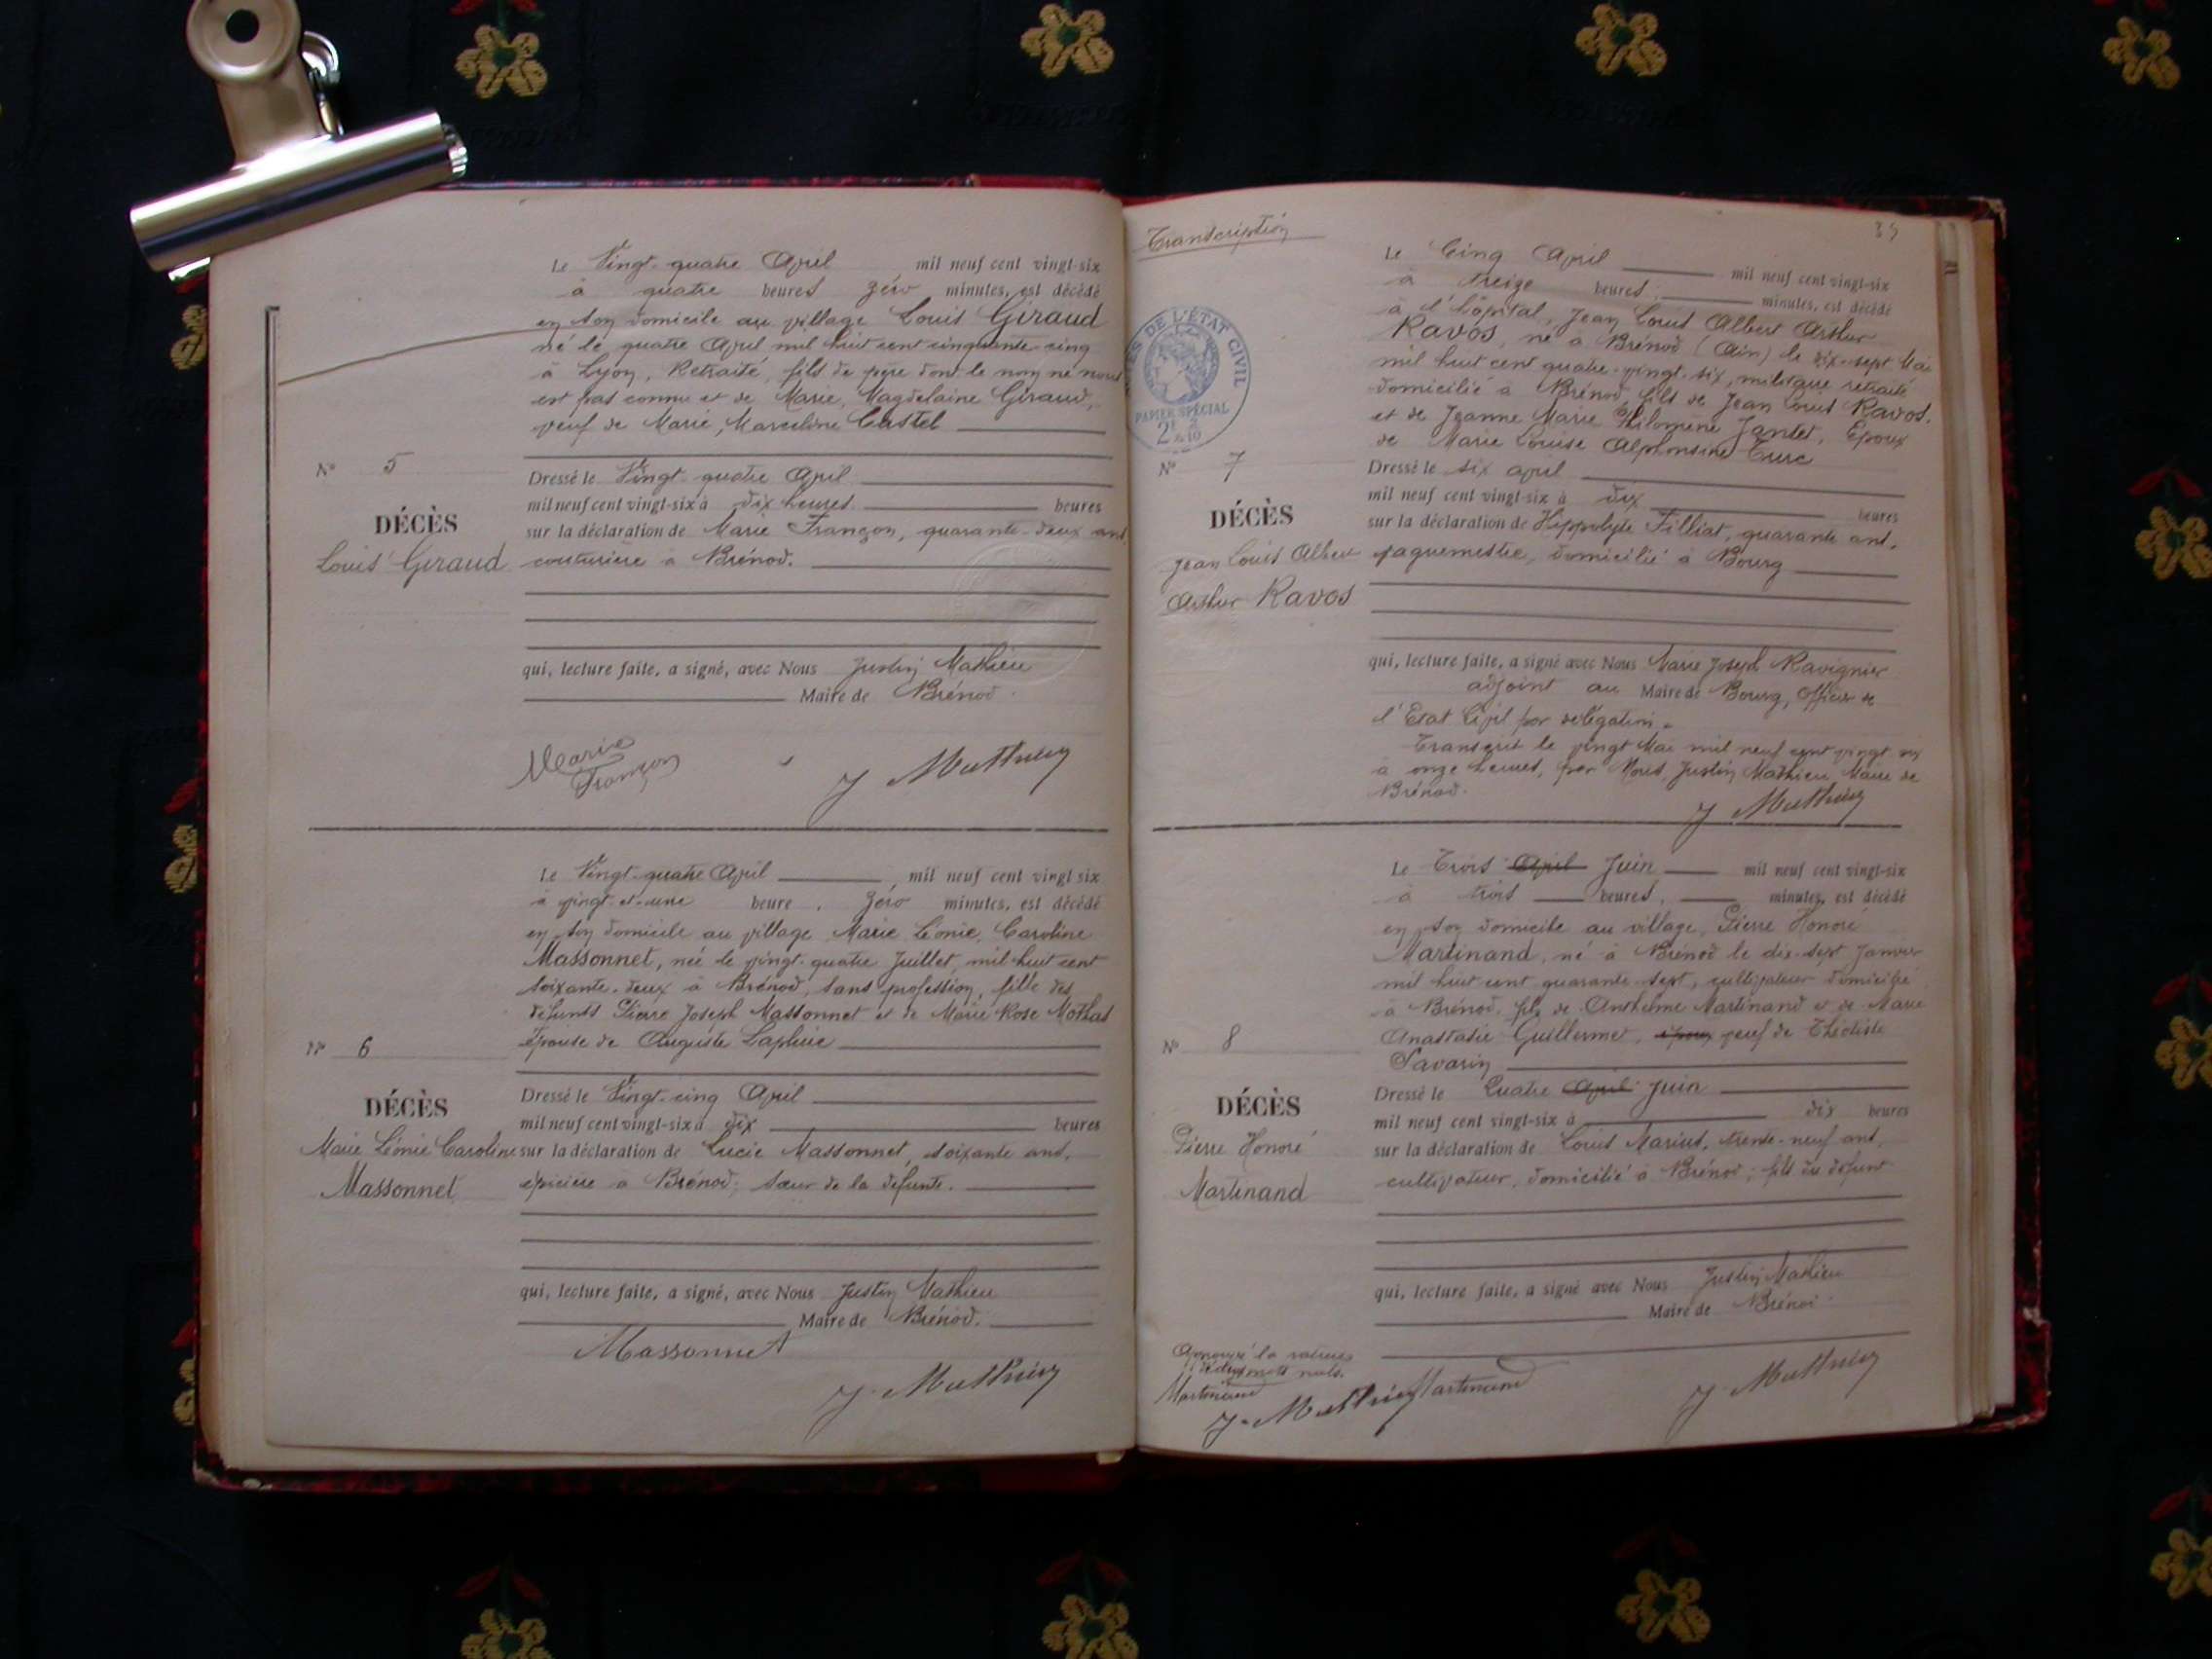 Le Vingt-quatre Avril mil neuf cent vingt-six
à quatre heures zéro minutes, est décédé
en son domicile au village Louis Giraud
né le quatre Avril mil huit cent cinquante-cinq
à Lyon, Retraité, fils de père dont le nom ne nous
est pas connu et de Marie, Magdelaine Giraud,
veuf de Marie, Marceline Castel
N° 5
Dressé le Vingt-quatre Avril
mil neuf cent vingt-six à dix heures heures
DÉCÈS
sur la déclaration de Marie Françon, quarante-deux ans
Louis Giraud
couturière à Brénod.
qui, lecture faite, a signé, avec Nous Justin Mathieu
Maire de Brénod.
Marie
Françon
J Mathieu
Le Vingt-quatre Avril mil neuf cent vingt-six
à vingt-et-une heure, zéro minutes, est décédé
en son domicile au village Marie Léonie, Caroline
Massonnet, née le vingt-quatre Juillet, mil huit cent
soixante-deux à Brénod, sans profession, fille des
défunts Pierre Joseph Massonnet et de Marie Rose Mothas
Épouse de Auguste
N° 6
Dressé le Vingt-cinq Avril
DÉCÈS
mil neuf cent vingt-six à dix heures
Marie Léonie Caroline
sur la déclaration de Lucie Massonnet, soixante ans,
Massonnet
épicière à Brénod; sœur de la défunte.
qui, lecture faite, a signé, avec Nous Justin Mathieu
Maire de Brénod.
Massonnet
J. Mathieu
Transcription
39
DE L'ÉTAT CIVIL
PAPIER SPÉCIAL
Le Cinq Avril mil neuf cent vingt-six
à treize heures, minutes, est décédé
à l'hôpital, Jean Louis Albert Arthur
Ravos, né à Brénod (Ain) le dix-sept Mai
mil huit cent quatre-vingt-six, militaire retraité
domicilié à Brénod, fils de Jean Louis Ravos.
et de Jeanne Marie Philomène Jantet, Époux
de Marie Louise Alphonsine Turc
N° 7
Dressé le six avril
mil neuf cent vingt-six à dix heures
DÉCÈS
sur la déclaration de Hippolyte Filliat, quarante ans,
Jean Louis Albert
vaguemestre, domicilié à Bourg
Arthur Ravos
qui, lecture faite, a signé avec Nous Marie Joseph Ravignier
adjoint au Maire de Bourg, Officier de
l'Etat Civil par délégation.
Transcrit le vingt Mai mil neuf cent vingt six
à onze heures, par Nous, Justin Mathieu Maire de
Brénod.
J Mathieu
Le Trois Avril Juin mil neuf cent vingt-six
à trois heures, minutes, est décédé
en son domicile au village, Pierre Honoré
Martinand, né à Brénod le dix-sept Janvier
mil huit cent quarante-sept, cultivateur domicilié
à Brénod, fils de Anthelme Martinand et de Marie
Anastasie Guillermet, époux veuf de Théotiste
Savarin
N° 8
Dressé le Quatre Avril Juin
DÉCÈS
mil neuf cent vingt-six à dix heures
Pierre Honoré
sur la déclaration de Louis Marius, trente-neuf ans,
Martinand
cultivateur, domicilié à Brénod; fils du défunt
qui, lecture faite, a signé avec Nous Justin Mathieu
Maire de Brénod
Approuvé la rature
de deux mots nuls.
Martinand
J. Mathieu Martinand
J. Mathieu